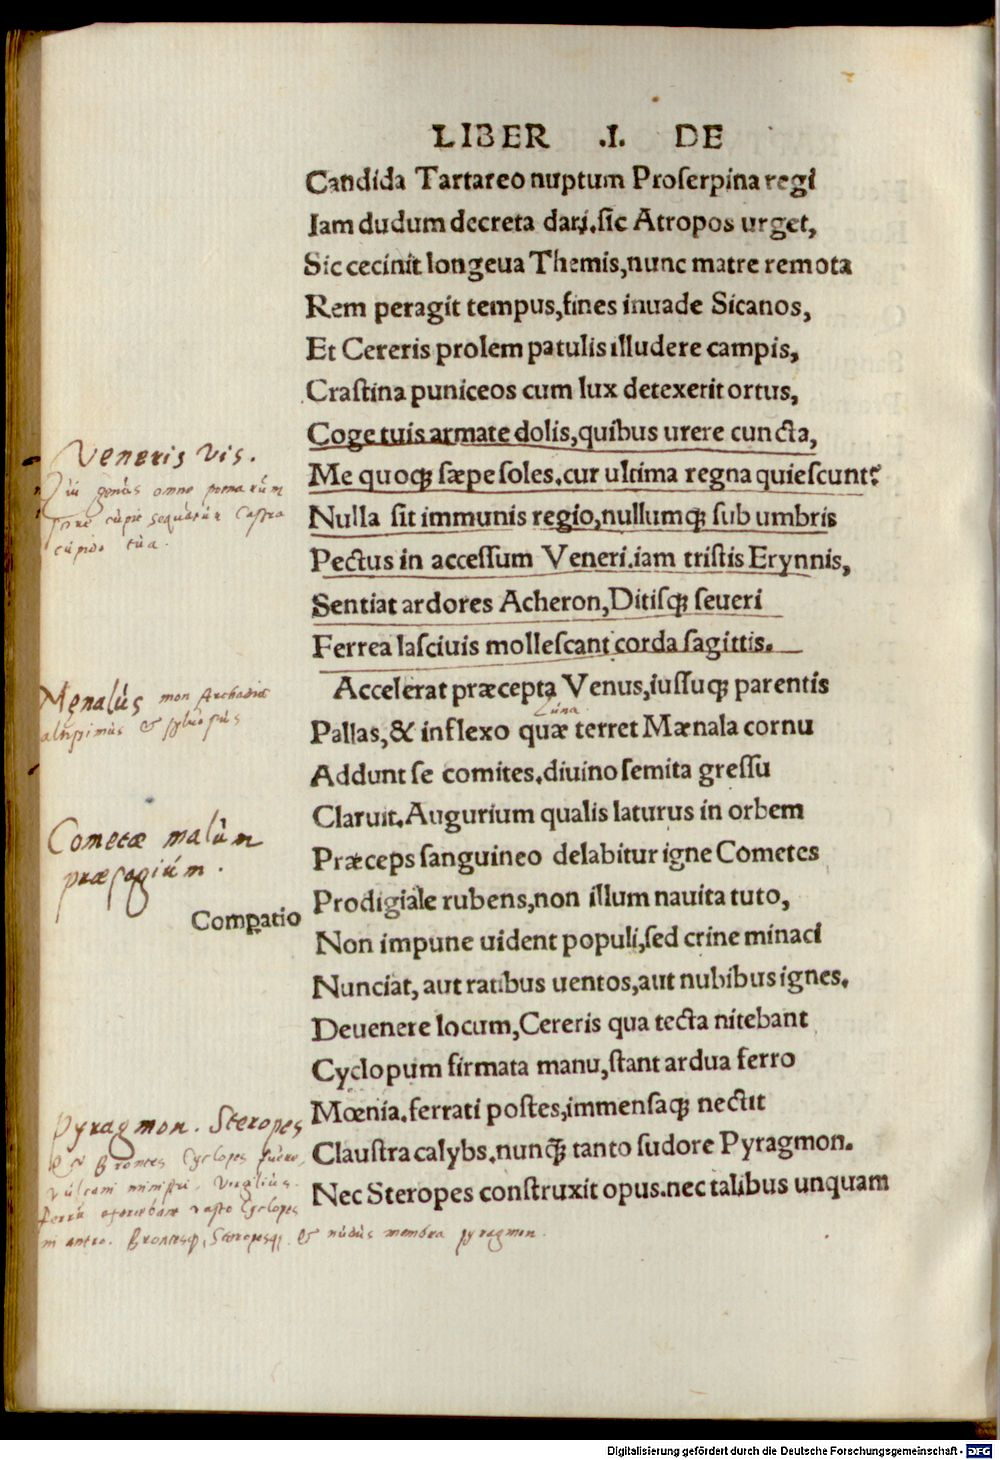 LIBER .I. DE
Candida Tartareo nuptum Proserpina regi
Iam dudum decreta dari.sic Atropos urget,
Sic cecinit longeua Themis,nunc matre remota
Rem peragit tempus,fines inuade Sicanos,
Et Cereris prolem patulis illudere campis,
Crastina puniceos cum lux detexerit ortus,
Coge tuis armate dolis,quibus urere cuncta,
Me quoq; sæpe soles.cur ultima regna quiescunt?
Nulla sit immunis regio,nullumq; sub umbris
Pectus in accessum Veneri.iam tristis Erynnis,
Sentiat ardores Acheron,Ditisq; seueri
Ferrea lasciuis mollescant corda sagittis.
Accelerat præcepta Venus,iussuq; parentis
Luna
Pallas,& inflexo quæ terret Mænala cornu
Addunt se comites.diuino semita gressu
Claruit.Augurium qualis laturus in orbem
Præceps sanguineo delabitur igne Cometes
Prodigiale rubens,non illum nauita tuto,
Non impune uident populi,sed crine minaci
Nunciat, aut ratibus uentos,aut nubibus ignes.
Deuenere locum,Cereris qua tecta nitebant
Cyclopum firmata manu,stant ardua ferro
Mœnia.ferrati postes,immensaq; nectit
Claustra calybs.nunq̃ tanto sudore Pyragmon.
Nec Steropes construxit opus.nec talibus unquam
Veneris vis.
genus omne
cupit sequatur castra
cupido tua.
Menalus mon Archadiæ
altissimus &
Cometæ malum
præsagium.
Comꝑatio
Pyragmon. Steropes
& Brontes Cyclopes fuere,
vulcani ministri. Vergilius.
ferrū exercebant vasto Cyclopes
in antro. Brontesq;, Steropesq;. & nudus membra pyragmon.
Digitalisierung gefördert durch die Deutsche Forschungsgemeinschaft - DFG